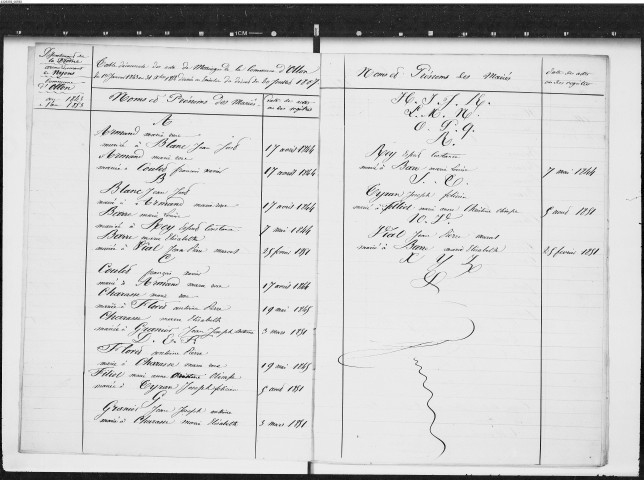 Département de
la Drôme
arrondissement
de Nyons
Commune
d'Ollon
an 1843
à l'an 1853
Table décennale des actes de Mariage de la Commune d'Ollon
du 1er Janvier 1843 au 31 Xbre 1852 dressée en exécution du Décret du 20 Juillet 1807
Noms et Prénoms des Mariés
Date des actes
ou des registres
A
Armand marie rose
mariée à Blanc Jean José 17 avril 1844
Armand marie rose
mariée à Coulet françois xavier 17 avril 1844
B
Blanc Jean José
marié à Armand marie rose 17 avril 1844
Bam marie Louise
mariée à Roy esprit Constance 7 mai 1844
Bam marie Elisabeth
mariée à Vial Jean Pierre marcel 25 février 1851
C
Coulet françois xavier
marié à Armand marie rose 17 avril 1844
Charasse marie rose
mariée à Floret antoine Pierre 19 mai 1845
Charasse marie Elisabeth
mariée à Granier Jean Joseph antoine 3 mars 1851
D. E. F.
Floret antoine Pierre
marié à Charasse marie rose 19 mai 1845
Filiol marie anne olimpe
mariée à Tyran Joseph félicien 5 avril 1851
G
Granier Jean Joseph antoine
marié à Charasse marie Elisabeth 3 mars 1851
Noms et Prénoms des Mariés
Date des actes
ou des registres
H. I. J. K.
L. M. N.
O. P. Q.
R.
Roy esprit Constance
marié à Bam marie Louise 7 mai 1844
S. T.
Tyran Joseph félicien
marié à filiol marie anne olimpe 5 avril 1851
U. V.
Vial Jean Pierre marcel
marié à Bam marie Elisabeth 25 février 1851
X Y Z